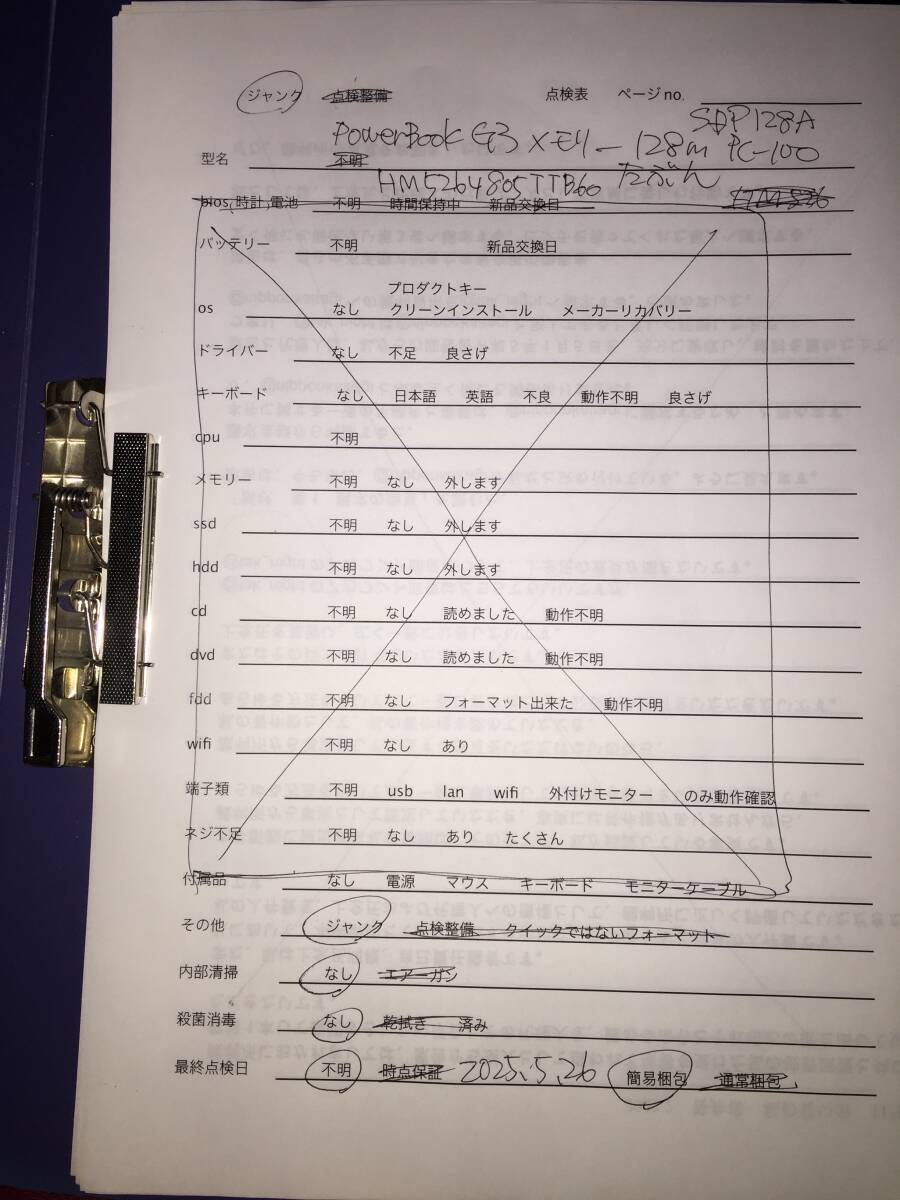 ジャンク 点検整備 点検表 ページno.
SDP128A
PowerBook G3 メモリー 128m PC-100
型名 不明
HM5264805TTB60 たぶん
bios,時計,電池 不明 時間保持中 新品交換日
バッテリー 不明 新品交換日
プロダクトキー
os なし クリーンインストール メーカーリカバリー
ドライバー なし 不足 良さげ
キーボード なし 日本語 英語 不良 動作不明 良さげ
cpu 不明
メモリー 不明 なし 外します
ssd 不明 なし 外します
hdd 不明 なし 外します
cd 不明 なし 読めました 動作不明
dvd 不明 なし 読めました 動作不明
fdd 不明 なし フォーマット出来た 動作不明
wifi 不明 なし あり
端子類 不明 usb lan wifi 外付けモニター のみ動作確認
ネジ不足 不明 なし あり たくさん
付属品 なし 電源 マウス キーボード モニターケーブル
その他 ジャンク 点検整備 クイックではないフォーマット
内部清掃 なし エアーガン
殺菌消毒 なし 乾拭き 済み
最終点検日 不明 時点保証 2025.5.26 簡易梱包 通常梱包